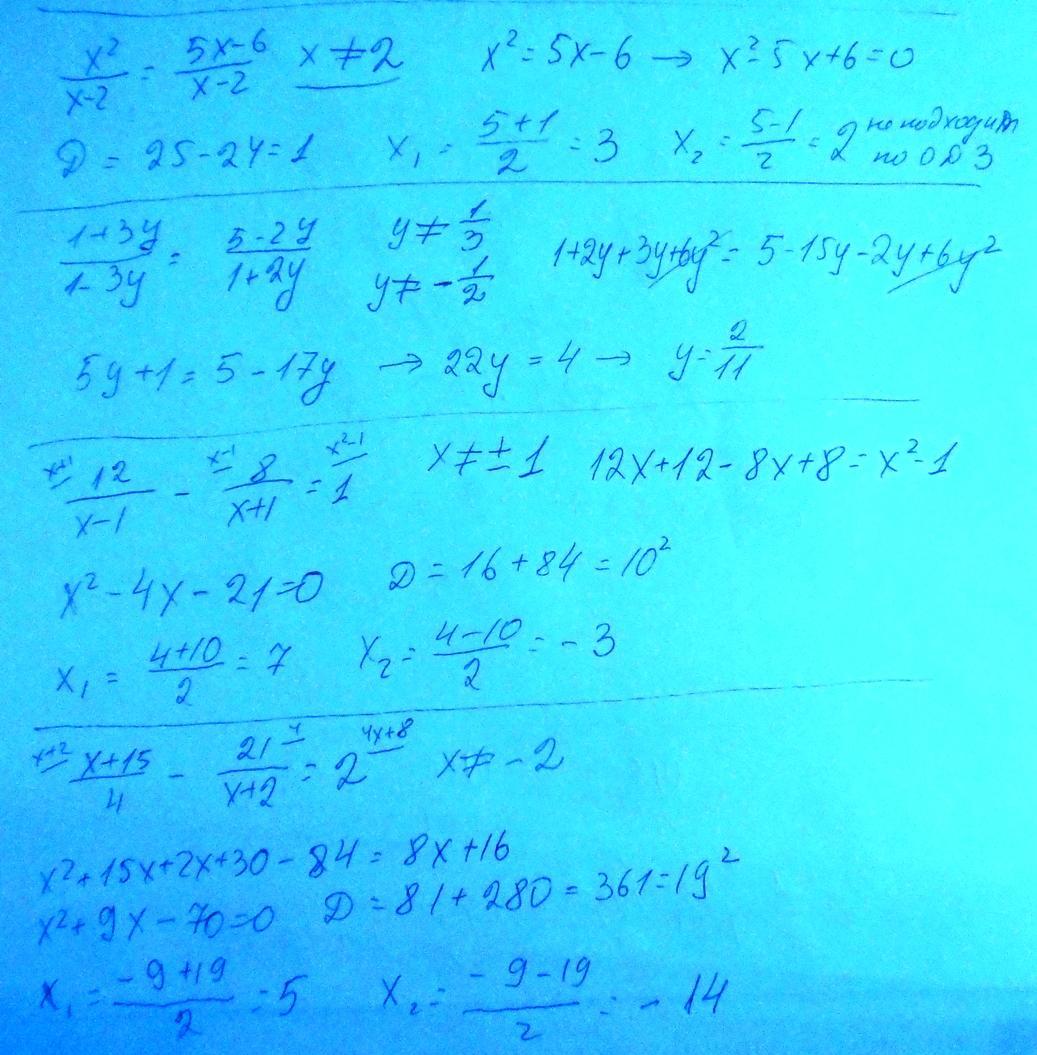 x²/(x-2) = (5x-6)/(x-2) x≠2 x²=5x-6 → x²-5x+6=0
D = 25-24=1 x₁ = (5+1)/2 = 3 x₂ = (5-1)/2 = 2 не подходит по ОДЗ
(1+3y)/(1-3y) = (5-2y)/(1+2y) y≠1/3 y≠-1/2 1+2y+3y+6y² = 5-15y-2y+6y²
5y+1 = 5-17y → 22y = 4 → y = 2/11
x+1 12/(x-1) - x-1 8/(x+1) = 1 x²-1 x≠±1 12x+12-8x+8=x²-1
x²-4x-21=0 D=16+84=10²
x₁ = (4+10)/2 = 7 x₂ = (4-10)/2 = -3
x+2 (x+15)/4 - 21/(x+2) 4 = 2 4x+8 x≠-2
x²+15x+2x+30-84=8x+16
x²+9x-70=0 D=81+280=361=19²
x₁ = (-9+19)/2 = 5 x₂ = (-9-19)/2 = -14